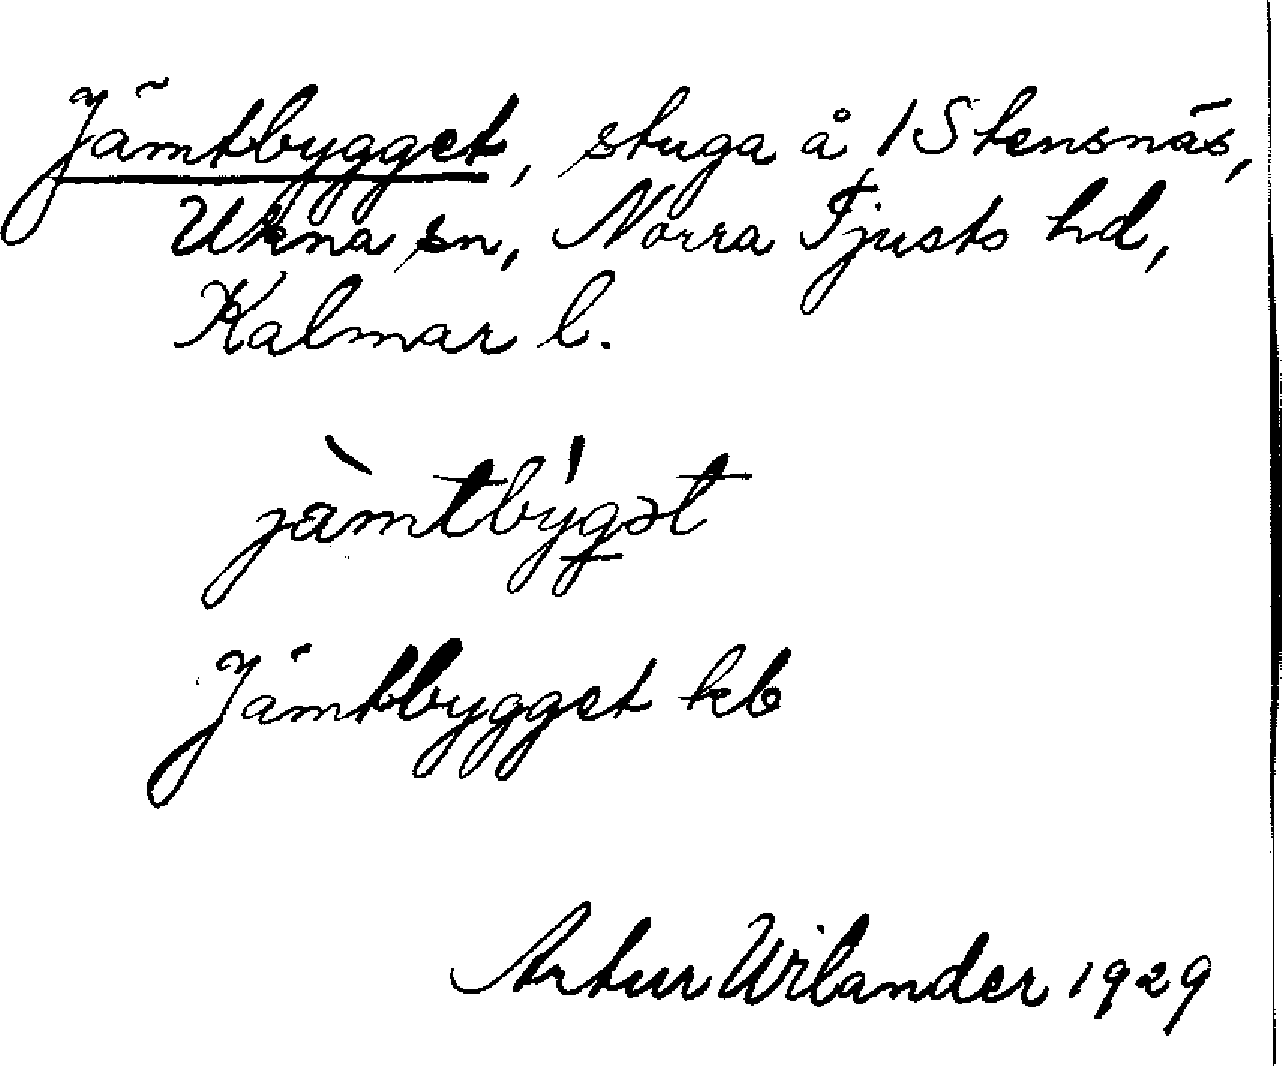 Jämtbygget, stuga å 1 Stensnäs,
Ukna sn, Norra Tjusts hd,
Kalmar l.
jàmtbýgət
Jämtbygget kb
Artur Wilander 1929